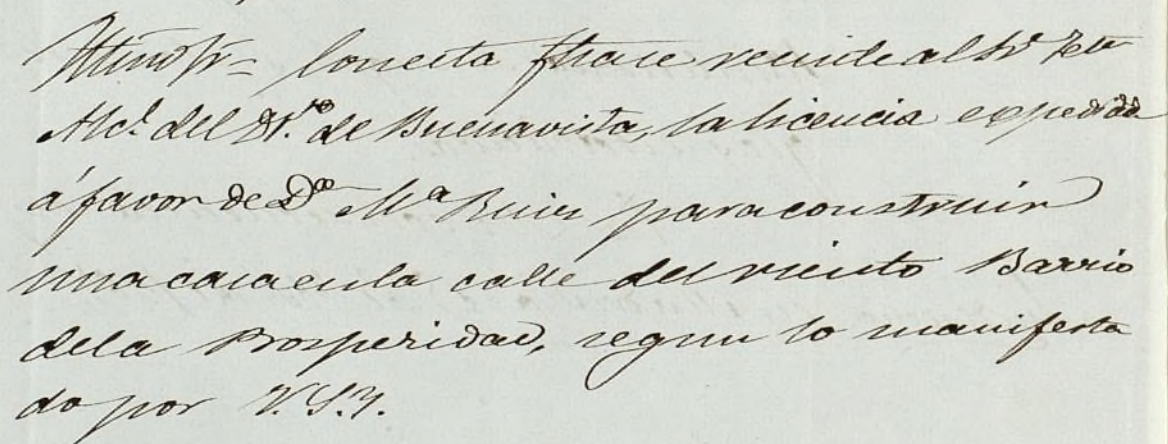 Iltmo Sr = Con esta fha se remite al Sr. Tete
Alcl. del Dto. de Buenavista, la licencia expedida
á favor de Da. Ma Ruiz para construir
una casa en la calle del viento Barrio
de la Prosperidad, segun lo manifesta
do por V.S.Y.